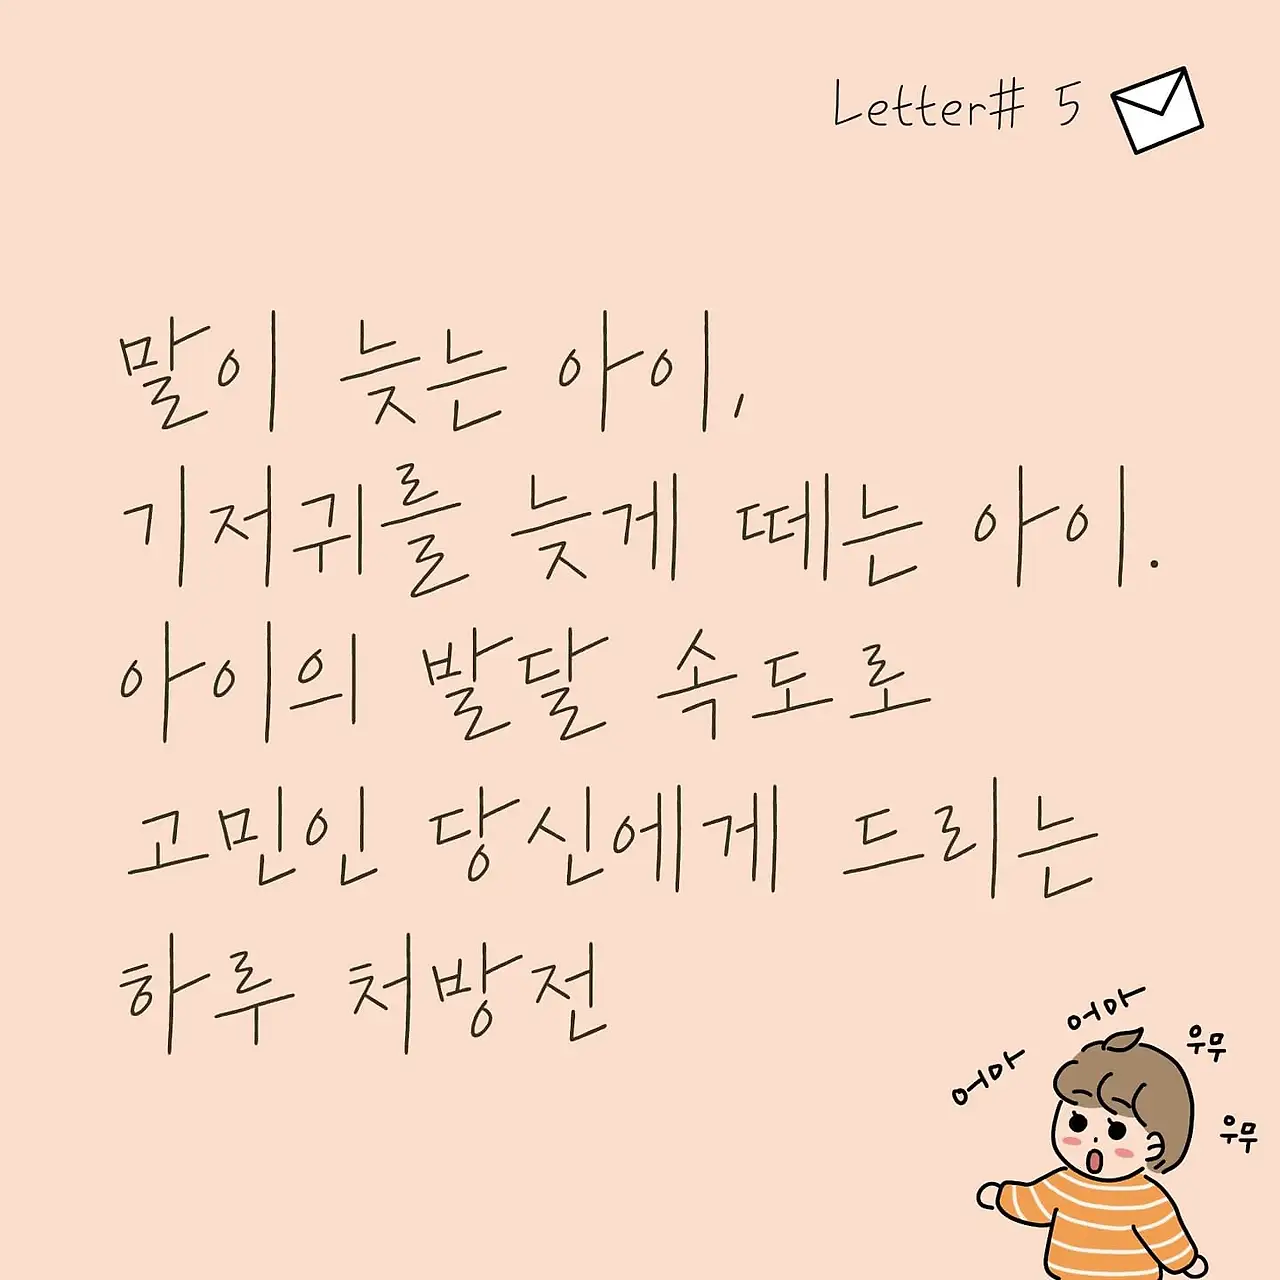 Letter# 5
말이 늦는 아이,
기저귀를 늦게 떼는 아이.
아이의 발달 속도로
고민인 당신에게 드리는
하루 처방전
어마
어마
우무
우무